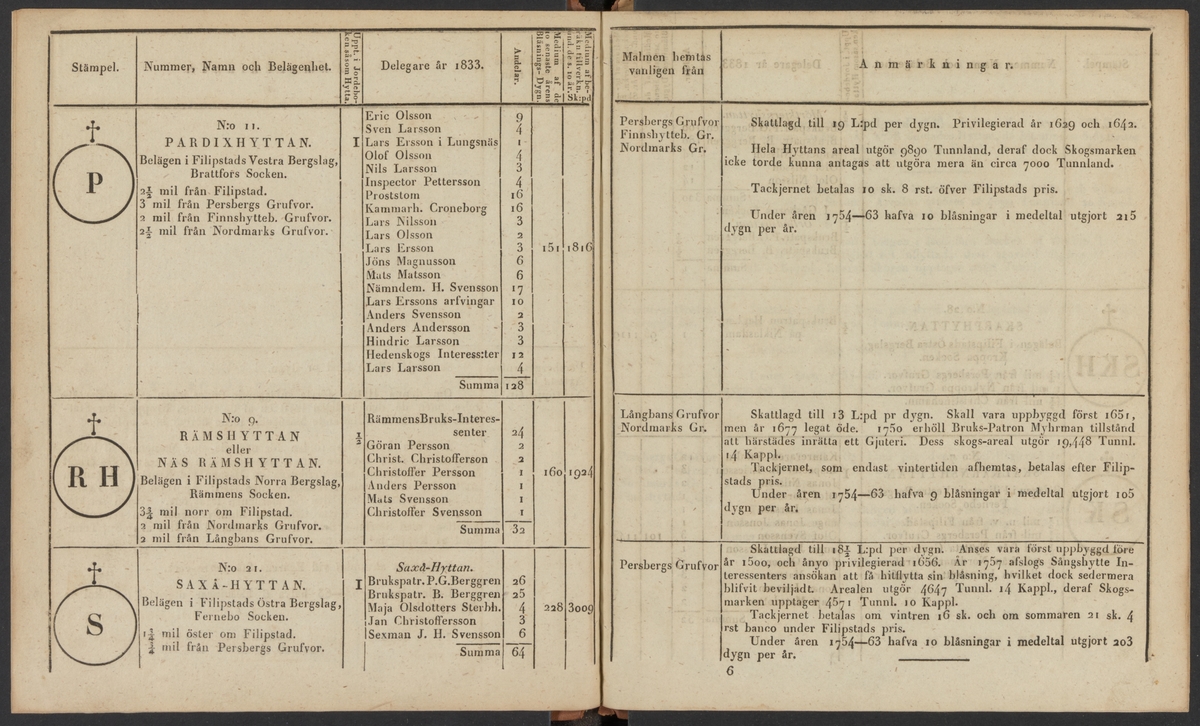 Stämpel.
Nummer, Namn och Belägenhet.
Uppt. i Jordebo-
ken såsom Hytta.
Delegare år 1833.
Andelar.
Medium af de
10 senaste årens
Blåsnings-Dygn.
Medium af be-
räkn. tillverkn.
und. des. 10 år.
Sk:pd
Malmen hemtas
vanligen från
Anmärkningar.
P
N:o 11.
PARDIXHYTTAN.
Belägen i Filipstads Vestra Bergslag,
Brattfors Socken.
2½ mil från Filipstad.
3 mil från Persbergs Grufvor.
2 mil från Finnshytteb. Grufvor.
2½ mil från Nordmarks Grufvor.
1
Eric Olsson 9
Sven Larsson 4
Lars Ersson i Lungsnäs 1
Olof Olsson 4
Nils Larsson 3
Inspector Pettersson 4
Proststom 16
Kammarh. Croneborg 16
Lars Nilsson 3
Lars Olsson 2
Lars Ersson 3 151 1816
Jöns Magnusson 6
Mats Matsson 6
Nämndem. H. Svensson 17
Lars Erssons arfvingar 10
Anders Svensson 2
Anders Andersson 3
Hindric Larsson 3
Hedenskogs Interess:ter 12
Lars Larsson 4
Summa 128
Persbergs Grufvor
Finnshytteb. Gr.
Nordmarks Gr.
Skattlagd till 19 L:pd per dygn. Privilegierad år 1629 och 1642.
Hela Hyttans areal utgör 9890 Tunnland, deraf dock Skogsmarken
icke torde kunna antagas att utgöra mera än circa 7000 Tunnland.
Tackjernet betalas 10 sk. 8 rst. öfver Filipstads pris.
Under åren 1754—63 hafva 10 blåsningar i medeltal utgjort 215
dygn per år.
RH
N:o 9.
RÄMSHYTTAN
eller
NÄS RÄMSHYTTAN.
Belägen i Filipstads Norra Bergslag,
Rämmens Socken.
3¼ mil norr om Filipstad.
2 mil från Nordmarks Grufvor.
2 mil från Långbans Grufvor.
½
Rämmens Bruks-Interes-
senter 24
Göran Persson 2
Christ. Christofferson 2
Christoffer Persson 1 160 1924
Anders Persson 1
Mats Svensson 1
Christoffer Svensson 1
Summa 32
Långbans Grufvor
Nordmarks Gr.
Skattlagd till 13 L:pd pr dygn. Skall vara uppbyggd först 1651,
men år 1677 legat öde. 1750 erhöll Bruks-Patron Myhrman tillstånd
att härstädes inrätta ett Gjuteri. Dess skogs-areal utgör 19,448 Tunnl.
14 Kappl.
Tackjernet, som endast vintertiden afhemtas, betalas efter Filip-
stads pris.
Under åren 1754—63 hafva 9 blåsningar i medeltal utgjort 105
dygn per år.
S
N:o 21.
SAXÅ-HYTTAN.
Belägen i Filipstads Östra Bergslag,
Fernebo Socken.
1¾ mil öster om Filipstad.
¾ mil från Persbergs Grufvor.
1
Saxå-Hyttan.
Brukspatr. P. G. Berggren 26
Brukspatr. B. Berggren 25
Maja Olsdotters Sterbh. 4 228 3009
Jan Christoffersson 3
Sexman J. H. Svensson 6
Summa 64
Persbergs Grufvor
Skattlagd till 18½ L:pd per dygn. Anses vara först uppbyggd före
år 1500, och ånyo privilegierad 1656. År 1757 afslogs Sångshytte In-
teressenters ansökan att få hitflytta sin blåsning, hvilket dock sedermera
blifvit beviljadt. Arealen utgör 4647 Tunnl. 14 Kappl., deraf Skogs-
marken upptager 4571 Tunnl. 10 Kappl.
Tackjernet betalas om vintren 16 sk. och om sommaren 21 sk. 4
rst banco under Filipstads pris.
Under åren 1754—63 hafva 10 blåsningar i medeltal utgjort 203
dygn per år.
6